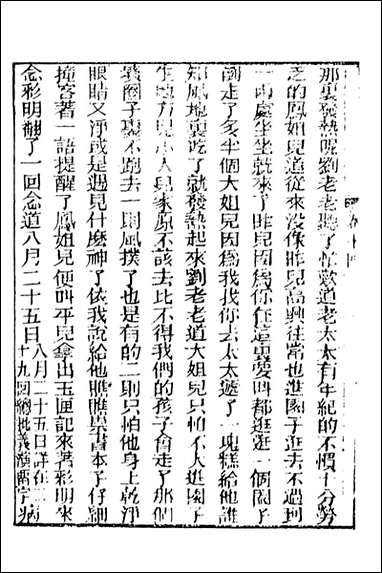 那裏發熱呢劉老老聽了忙歎道老太太有年紀的不慣十分勞
乏的鳳姐兒道從來没像昨兒高興往常也進園子逛去不過到
一兩處坐坐就來了昨兒因爲你在這裏要叫都逛逛一個園子
倒走了多半個大姐兒因爲我找你去太太遞了一塊糕給他誰
知風地裏吃了就發熱起來劉老老道大姐兒只怕不大進園子
生地方兒小人兒家原不該去比不得我們的孩子會走了那個
墳圈子裏不跑去一則風撲了也是有的二則只怕他身上乾淨
眼睛又淨或是遇見什麽神了依我說給他瞧瞧祟書本子仔細
撞客著一語提醒了鳳姐兒便叫平兒拿出玉匣記來著彩明來
念彩明翻了一回念道八月二十五日八月二十五日詳在二十九回總批義演兩字病